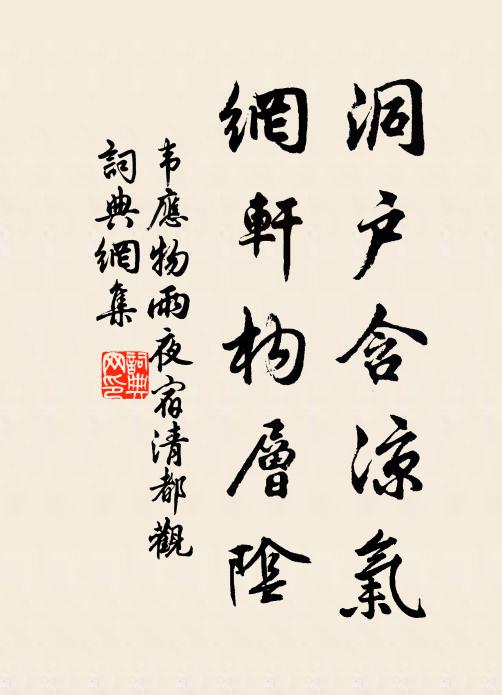 洞户含涼氣
網軒构層陰
韦應物雨夜宿清都觀
詞典網集
詞典网印